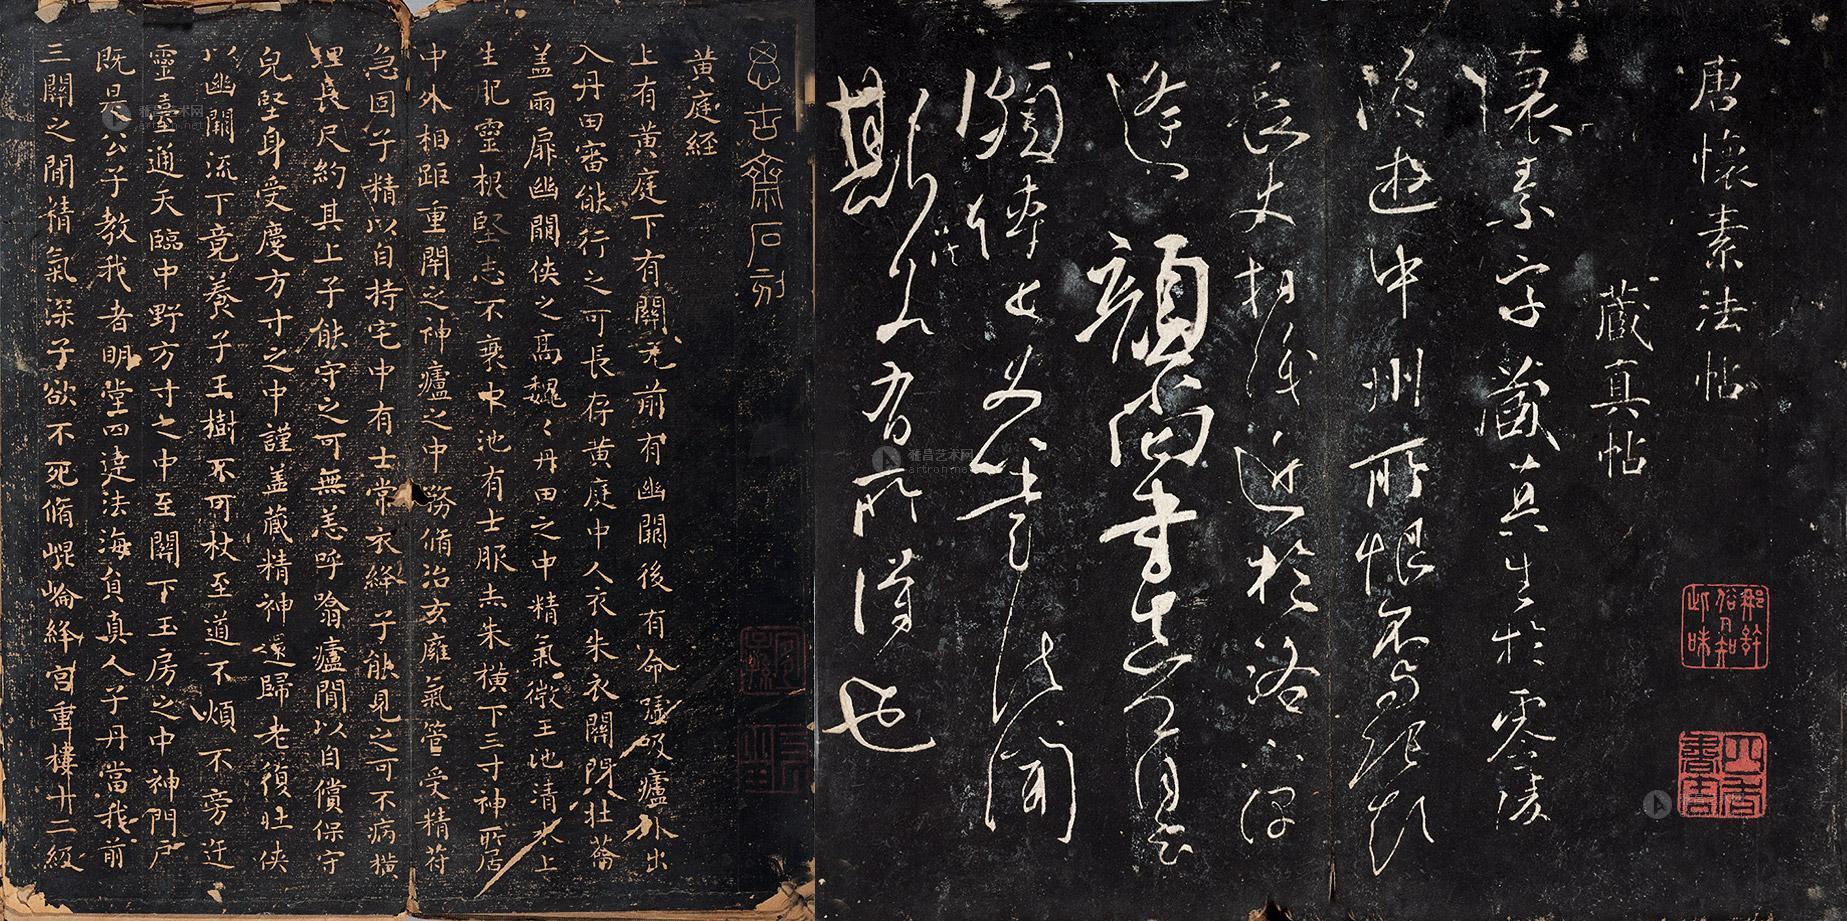 唐懷素法帖
藏真帖
懷素字藏真生於零陵
晚遊中州所恨不與張顛
長史相識近於洛下偶
逢顏尚書真卿自云
頗傳長史筆法聞
斯法若有所得也
思古齋石刻
黃庭経
上有黃庭下有關元前有幽闕後有命噓吸廬外出
入丹田審能行之可長存黃庭中人衣朱衣關門壯蘥
盖兩扉幽闕俠之高魏〻丹田之中精氣微玉池清水上
生肥靈根堅志不衰中池有士服赤朱橫下三寸神所居
中外相距重閇之神廬之中務脩治玄廱氣管受精苻
急固子精以自持宅中有士常衣絳子能見之可不病橫
理長尺約其上子能守之可無恙呼噏廬閒以自償保守
皃堅身受慶方寸之中謹盖藏精神還歸老復壯俠
以幽闕流下竟養子玉樹不可杖至道不煩不旁迕
靈臺通天臨中野方寸之中至關下玉房之中神門戶
既是公子教我者明堂四達法海員真人子丹當我前
三關之閒精氣深子欲不死脩崐崘絳宮重樓十二級
雅昌艺术网
artron.net
雅昌艺术网
artron.net